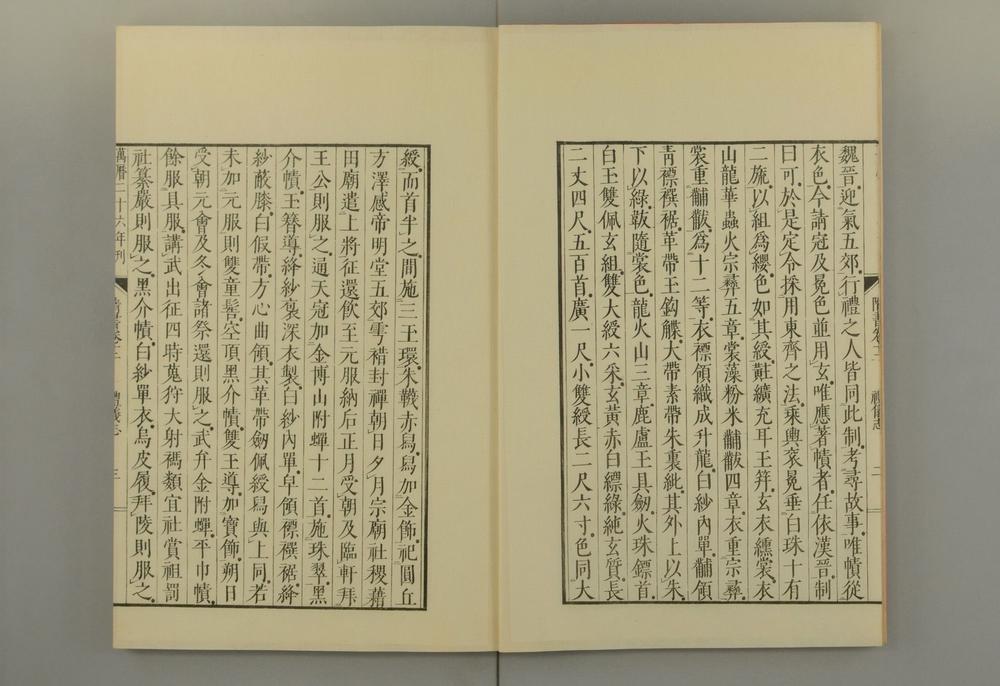 魏晉迎氣五郊行禮之人皆同此制考尋故事唯幘從
衣色今請冠及冕色並用玄唯應著幘者任依漢晉制
曰可於是定令採用東齊之法乘輿衮冕垂白珠十有
二旒以組為纓色如其綬黈纊充耳玉笄玄衣纁裳衣
山龍華蟲火宗彝五章裳藻粉米黼黻四章衣重宗彝
裳重黼黻為十二等衣褾領織成升龍白紗內單黼領
青褾襈裾革帶玉鈎䚢大帶素帶朱裏紕其外上以朱
下以綠韍隨裳色龍火山三章鹿盧玉具劒火珠鏢首
白玉雙佩玄組雙大綬六采玄黃赤白縹綠純玄質長
二丈四尺五百首廣一尺小雙綬長二尺六寸色同大
禮儀志 二
綬而首半之間施三玉環朱韈赤舄舄加金飾祀圓丘
方澤感帝明堂五郊雩禇封禪朝日夕月宗廟社稷藉
田廟遣上將征還飲至元服納后正月受朝及臨軒拜
王公則服之通天冠加金博山附蟬十二首施珠翠黑
介幘玉簪導絳紗袍深衣製白紗內單皁領褾襈裾絳
紗蔽膝白假帶方心曲領其革帶劒佩綬舄與上同若
未加元服則雙童髻空頂黑介幘雙玉導加寶飾朔日
受朝元會及冬會諸祭還則服之武弁金附蟬平巾幘
餘服具服講武出征四時蒐狩大射禡類宜社賞祖罰
社纂嚴則服之黑介幘白紗單衣烏皮履拜陵則服之
萬曆二十六年刊 禮儀志 三